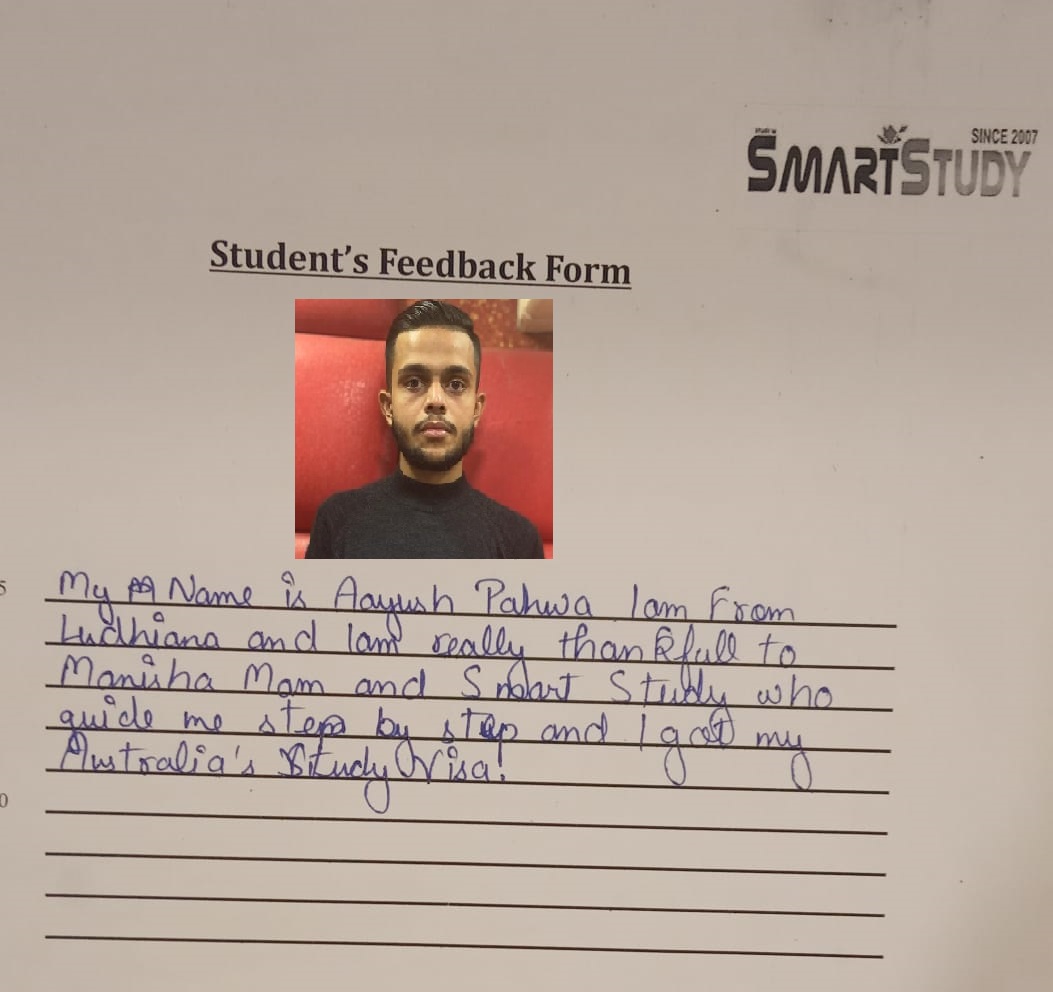 SINCE 2007
SMARTSTUDY
Student's Feedback Form
5
My Name is Aayush Pahwa I am From
Ludhiana and I am really thankfull to
Manisha Mam and Smart Study who
guide me step by step and I got my
Australia's Study Visa!
0